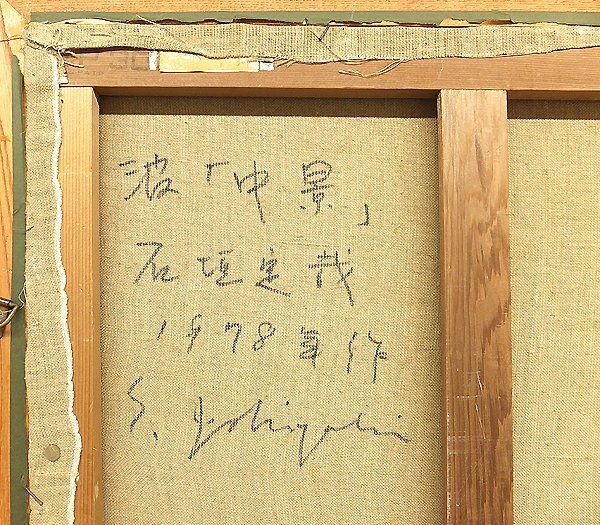 波「中景」
石垣定哉
1978年作
S. Ishigaki